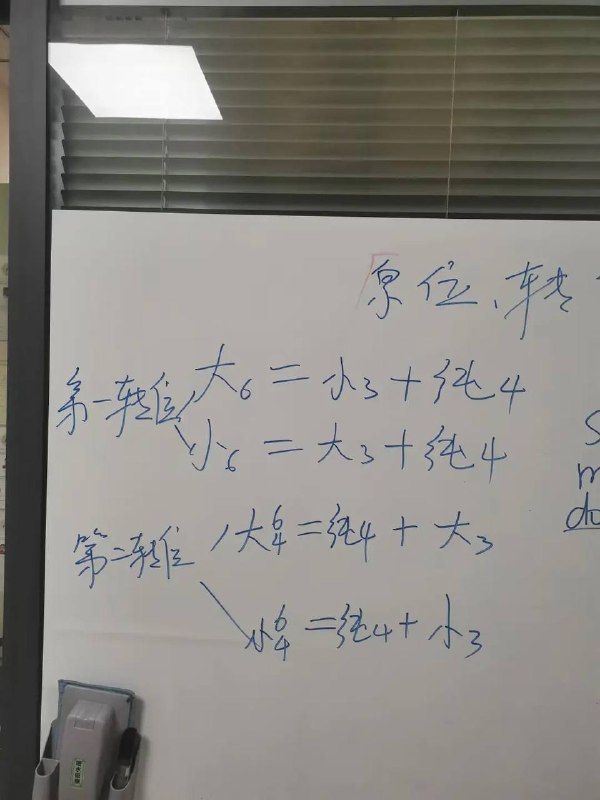 原位、转
第一转位 大6 = 小3 + 纯4
小6 = 大3 + 纯4
第二转位 大6 4 = 纯4 + 大3
小6 4 = 纯4 + 小3
S
m
do